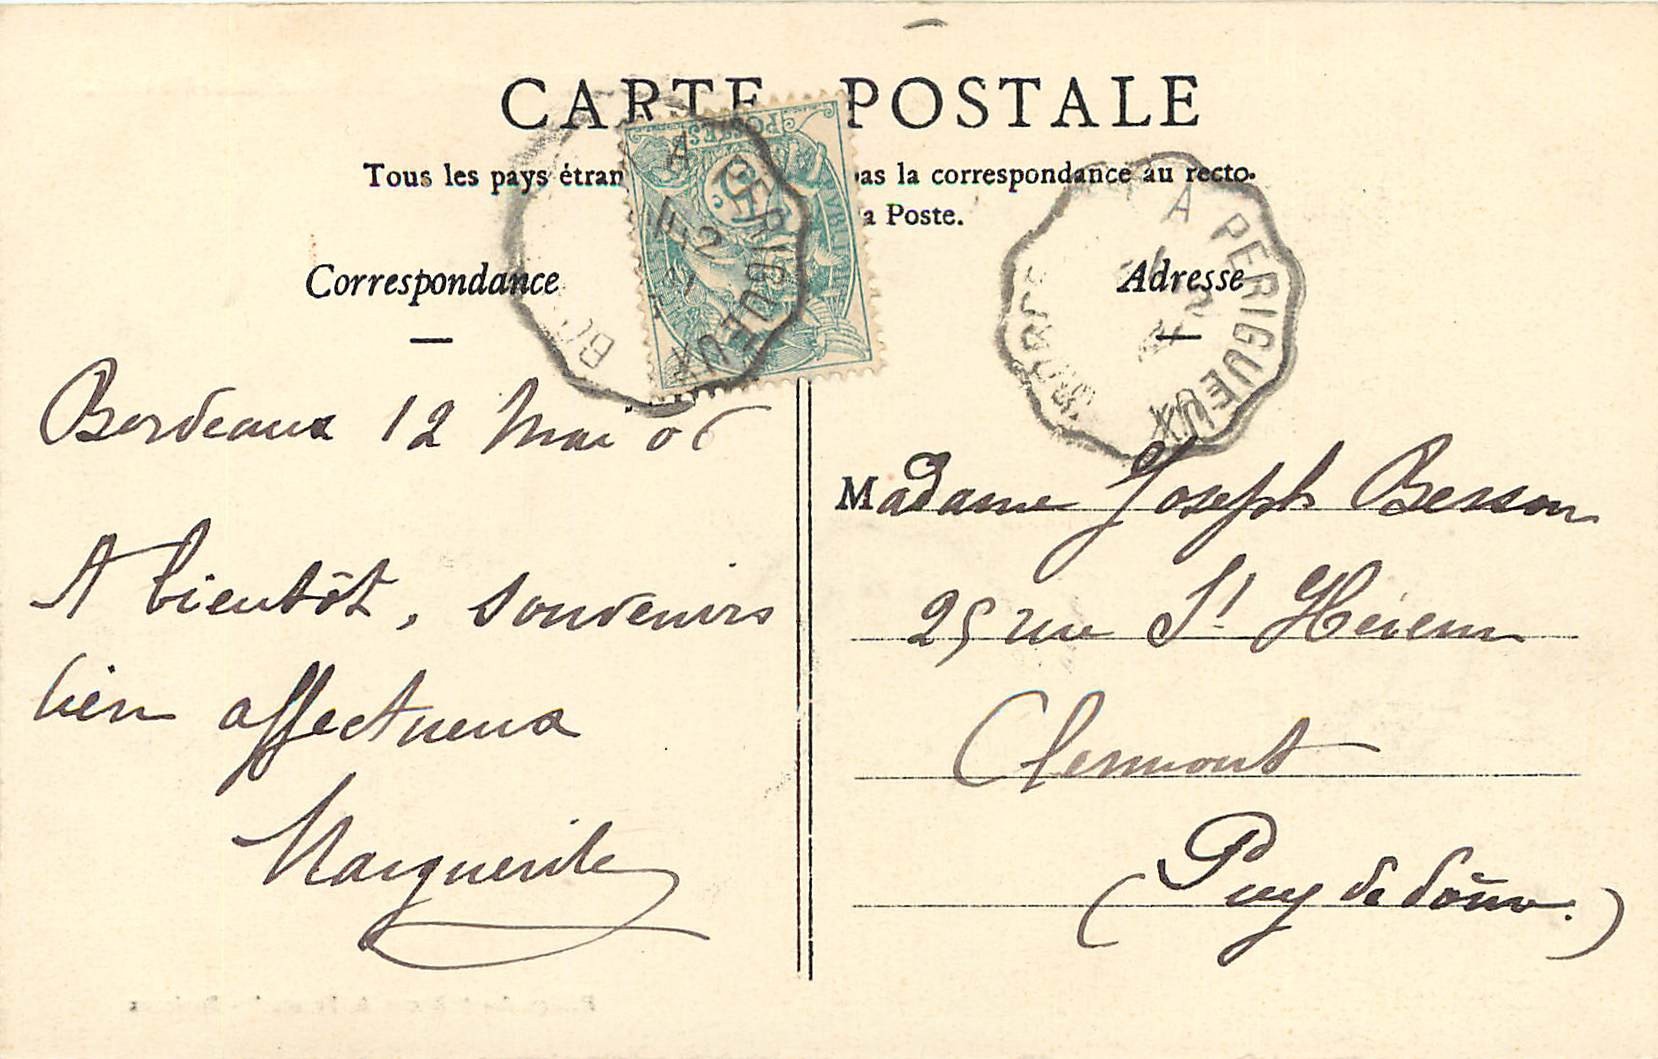 CARTE POSTALE
Tous les pays étran as la correspondance au recto.
a Poste.
Correspondance
Adresse
POSTES
5
A PERIGUEUX
BO
12
A PERIGUEUX
12
Bordeaux 12 Mai 06
A bientôt, souvenirs
bien affectueux
Marguerite
Madame Joseph Besson
25 rue St Hérem
Clermont
(Puy de Dôme.)